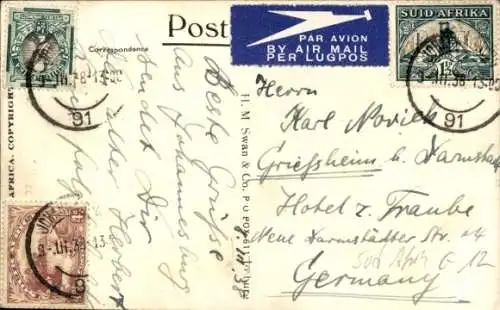 Post
Correspondence
PAR AVION
BY AIR MAIL
PER LUGPOS
SUID AFRIKA
91
91
91
AFRICA. COPYRIGHT
H. M. Swan & Co. P O Box
Beste Grüsse
aus Johannesburg
sendet Dir
alter Herbert
Herrn
Karl Novick
Griesheim b/ Darmstadt
Hotel z. Traube
Neue Darmstädter Str. 24
Germany
Süd Afrika G 12